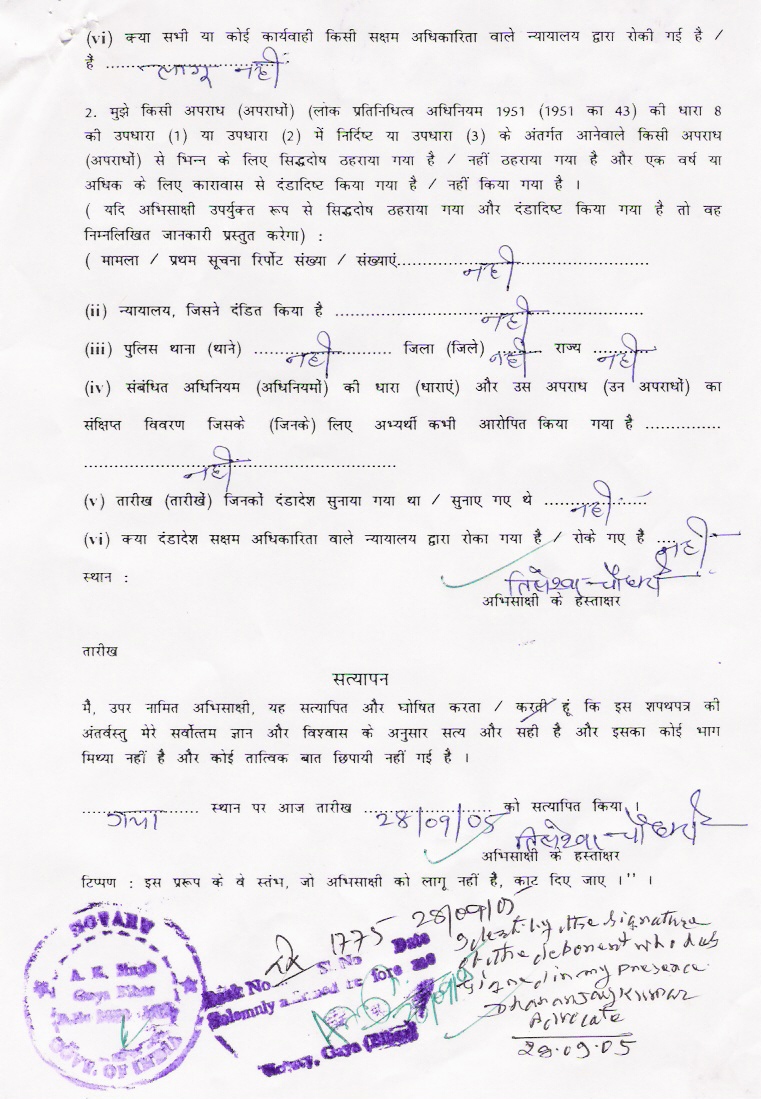 (vi) क्या सभी या कोई कार्यवाही किसी सक्षम अधिकारिता वाले न्यायालय द्वारा रोकी गई है /
हैं .................. लागू नहीं
2. मुझे किसी अपराध (अपराधों) (लोक प्रतिनिधित्व अधिनियम 1951 (1951 का 43) की धारा 8
की उपधारा (1) या उपधारा (2) में निर्दिष्ट या उपधारा (3) के अंतर्गत आनेवाले किसी अपराध
(अपराधों) से भिन्न के लिए सिद्धदोष ठहराया गया है / नहीं ठहराया गया है और एक वर्ष या
अधिक के लिए कारावास से दंडादिष्ट किया गया है / नहीं किया गया है ।
( यदि अभिसाक्षी उपर्युक्त रूप से सिद्धदोष ठहराया गया और दंडादिष्ट किया गया है तो वह
निम्नलिखित जानकारी प्रस्तुत करेगा) :
( मामला / प्रथम सूचना रिर्पोट संख्या / संख्याएं.......... नहीं ..........
(ii) न्यायालय, जिसने दंडित किया है .......... नहीं ..........
(iii) पुलिस थाना (थाने) .......... नहीं .......... जिला (जिले) नहीं राज्य .......... नहीं
(iv) संबंधित अधिनियम (अधिनियमों) की धारा (धाराएं) और उस अपराध (उन अपराधों) का
संक्षिप्त विवरण जिसके (जिनके) लिए अभ्यर्थी कभी आरोपित किया गया है ...............
.......... नहीं ..........
(v) तारीख (तारीखें) जिनको दंडादेश सुनाया गया था / सुनाए गए थे .......... नहीं
(vi) क्या दंडादेश सक्षम अधिकारिता वाले न्यायालय द्वारा रोका गया है / रोके गए हैं .... नहीं
स्थान :
चौधरी
अभिसाक्षी के हस्ताक्षर
तारीख
सत्यापन
मैं, उपर नामित अभिसाक्षी, यह सत्यापित और घोषित करता / करती हूं कि इस शपथपत्र की
अंतर्वस्तु मेरे सर्वोत्तम ज्ञान और विश्वास के अनुसार सत्य और सही है और इसका कोई भाग
मिथ्या नहीं है और कोई तात्विक बात छिपायी नहीं गई है ।
गया स्थान पर आज तारीख 28/09/05 को सत्यापित किया ।
चौधरी
अभिसाक्षी के हस्ताक्षर
टिप्पण : इस प्ररूप के वे स्तंभ, जो अभिसाक्षी को लागू नहीं है, काट दिए जाए ।" ।
NOTARY
A. K. Singh
Gaya Bihar
GOVT. OF INDIA
Book No S. No 1775 Date 28/09/05
Solemnly affirmed before me
Notary, Gaya (Bihar)
the signature
of the deponent who has
signed in my presence
Dhananjay Kumar
Advocate
28.09.05